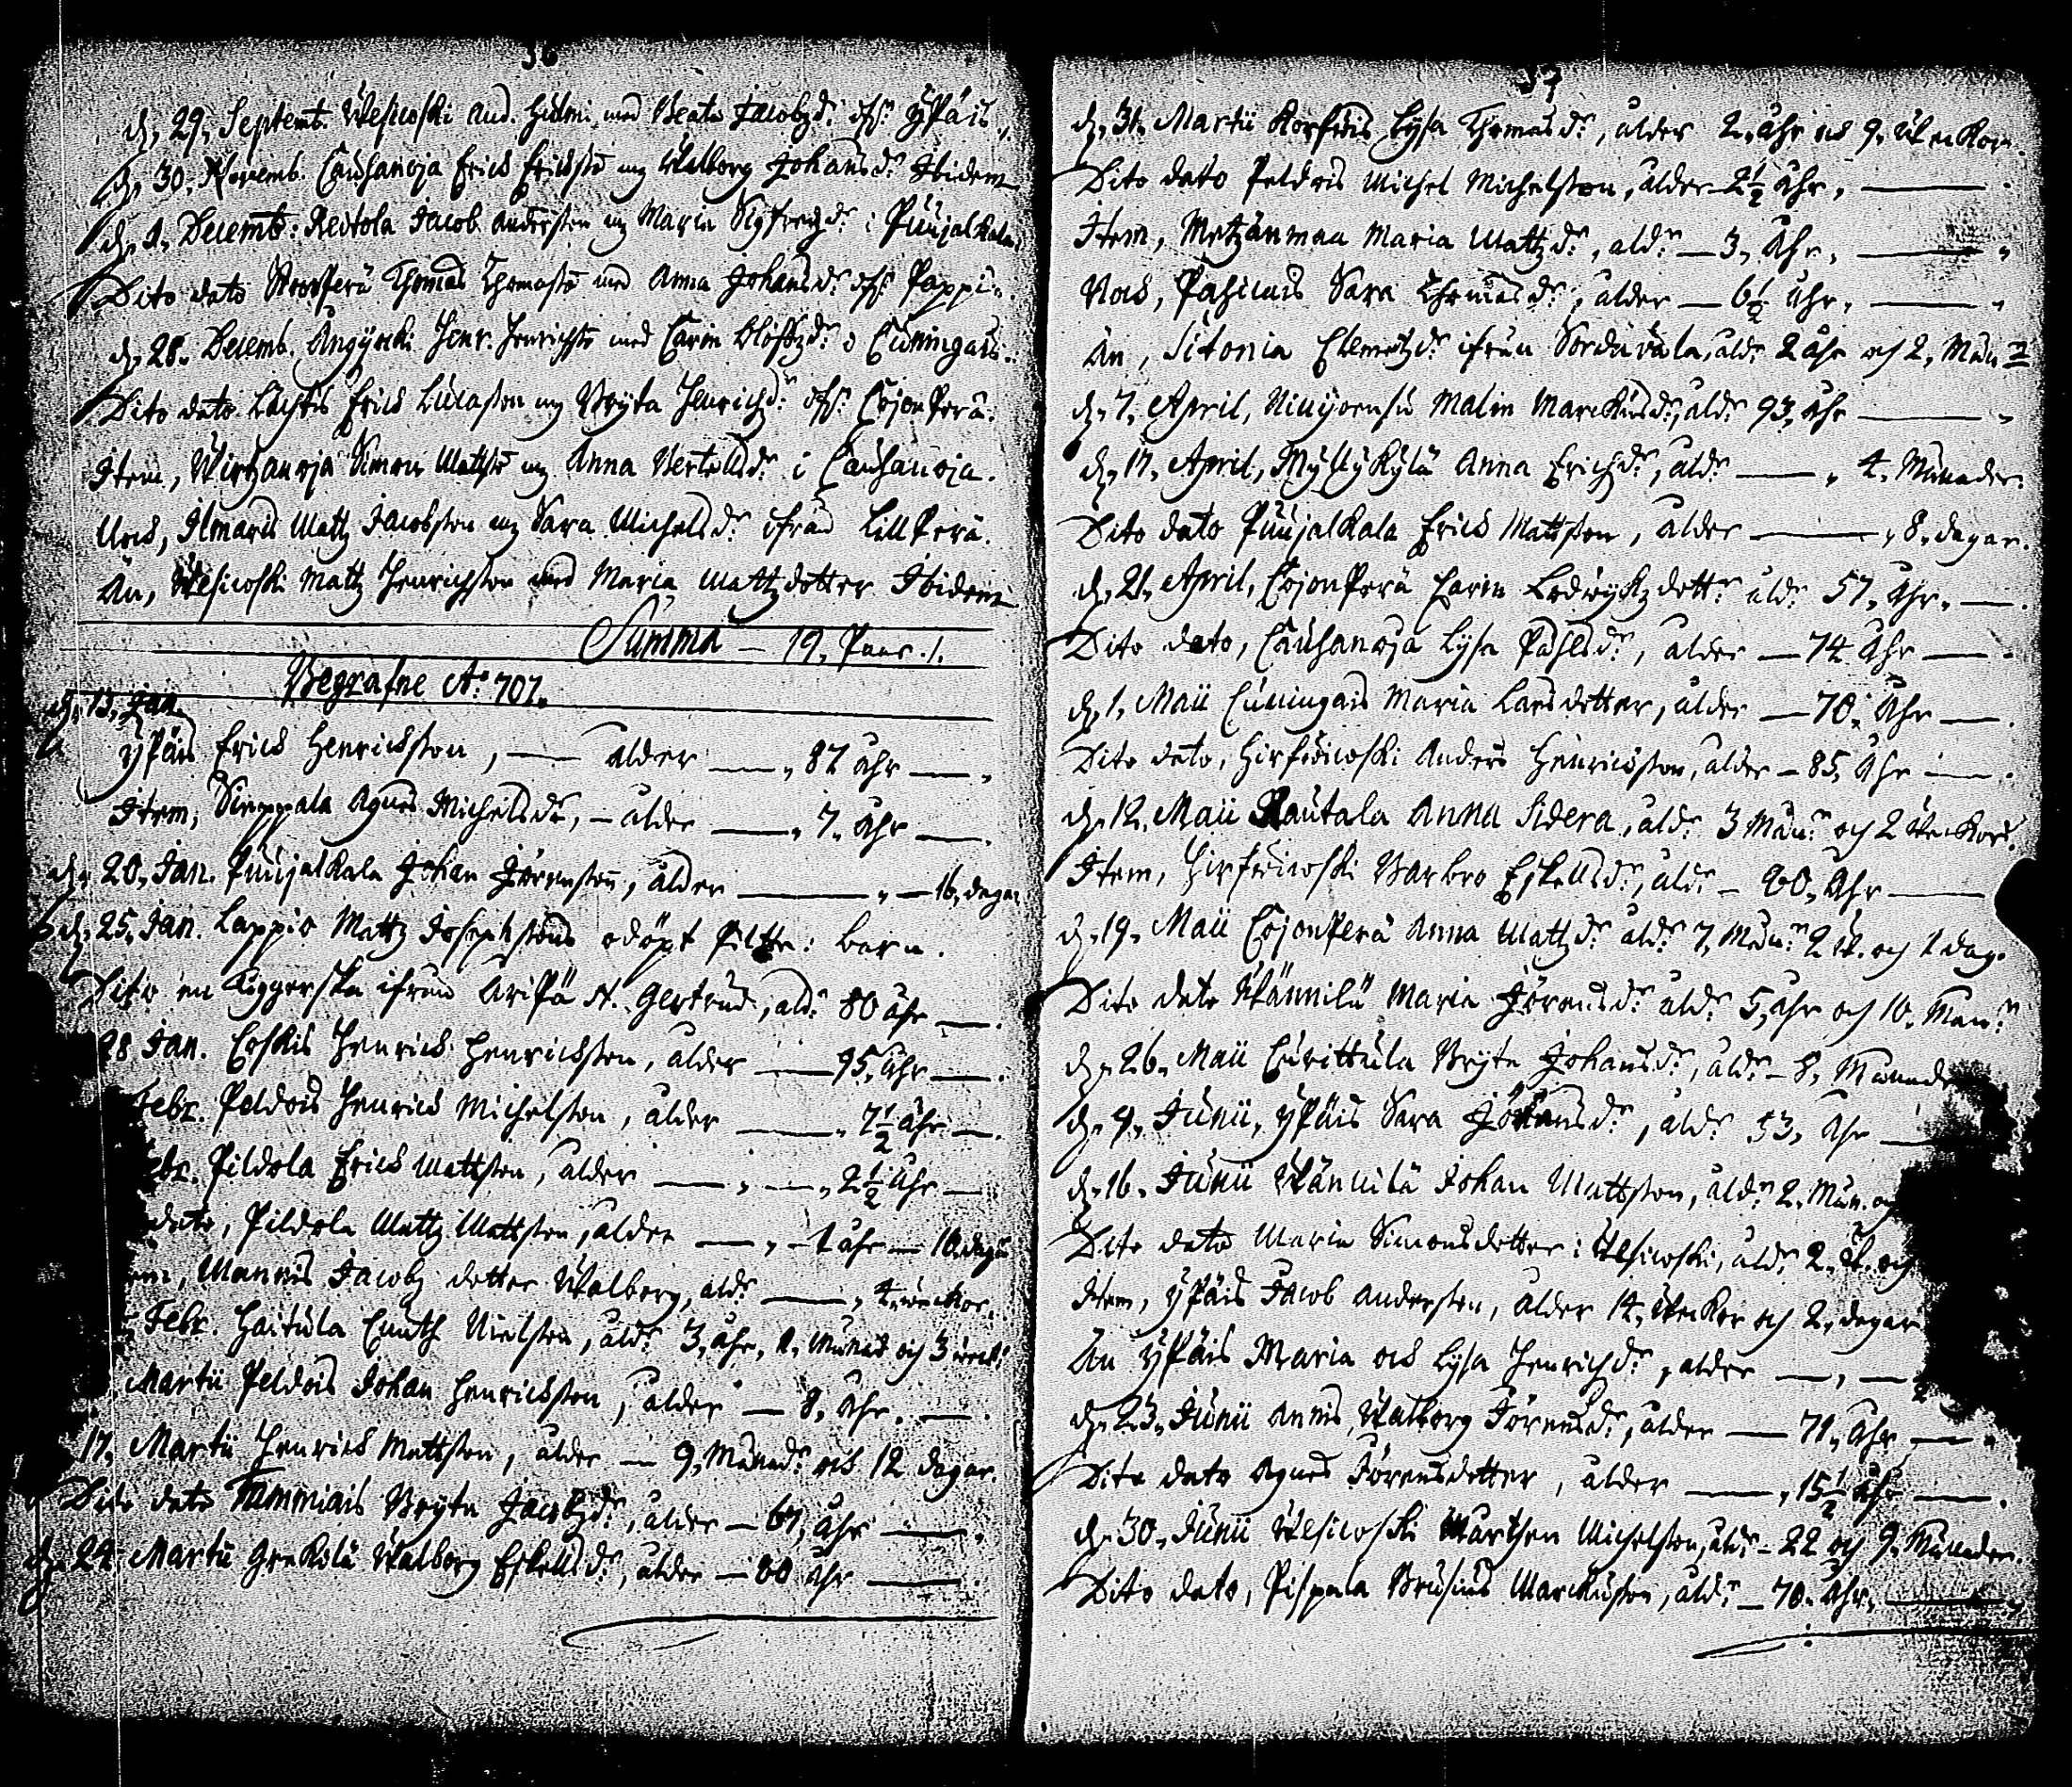 36
d. 29. Septemb. Wesicoski And. med Beata Jacobzdr. Ypäis.
d. 30. Novemb. Cauhanoja Erick Erichsson mz Walborg Johansdr. Ibidem
d. 1. Decemb: Reitola Jacob Andersson mz Maria Sigfredzdr. i Puujalkala.
Dito dato Thomas Thomasson med Anna Johansdr. Pappi
d. 28. Decemb. Henr. Henrichsson med Carin Oloffzdr. Cuningais.
Dito dato Lachtis Erick Lucasson mz Bryta Henrichzdr. CojonPerä.
Item, Wirtzanoja Simon Mattsson mz Anna Bertellsdr. i Cauhanoja.
Ock, Ilmaris Mattz Jacobsson mz Sara Michelsdr. ifrån LillPerä.
Än, Wesicoski Mattz Henrichsson med Maria Mattzdotter Ibidem
Summa — 19. Paar ./.
Begrafne Ao. 707.
d. 13. Jan.
Ypäis Erick Henricksson, — ålder — 87 åhr —
Item, Sieppala Agnes Michelsdr, — ålder — 7. åhr —
d. 20. Jan. Puujalkala Johan Jörensson, ålder — 16. dagar
d. 25. Jan. Lappio Mattz Josephssons odöpt barn.
Dito en Tiggerska ifrån AriPä N. Gertrud, åldr. 80 åhr —
28 Jan. Coskis Henrick Henricksson, ålder — 95. åhr —
Febr. Peldois Henrick Michelsson, ålder — 7½ åhr —
Febr. Pildola Erick Mattsson, ålder — 2½ åhr —
dato, Pildola Mattz Mattsson, ålder — 1 åhr — 10. dagar
Mannis Jacobz dotter Walborg, åldr — 4. weckor.
Febr. Haitula Cnuth Nielsson, åldr. 3. åhr, 1. Månad och 3 weck:
Martii Peldois Johan Henricksson, ålder — 8. åhr. —
17. Martii Henrick Mattsson, ålder — 9. Månadr. och 12 dagar.
Dito dato Tammiais Bryta Jacobzdr, ålder — 67. åhr —
d. 24. Martii Grekilä Walborg Eskellsdr, ålder — 80 åhr —
37
d. 31. Martii Korfwois Lysa Thomasdr, ålder 2. åhr och 9. Weckor.
Dito dato Peldois Michel Michelsson, ålder 2½ åhr, —
Item, Metzänmaa Maria Mattzdr, åldr — 3. åhr. —
Ock, Pahicais Sara Thomasdr, ålder — 6½ åhr. —
Än, Sitonia Clemetzdr. ifrån Sordavala, åldr 2 åhr och 2. Månr
d. 7. April, Malin Marckusdr, åldr. 93. åhr —
d. 17. April, Myllykylä Anna Erichzdr, åldr — 4. Månader.
Dito dato Puujalkala Erick Mattsson, ålder — 8. dagar.
d. 21. April, CojonPerä Carin Lodwickzdottr åldr 57. åhr. —
Dito dato, Cauhanoja Lysa Påhlsdr, ålder — 74 åhr —
d. 1. Maii Cuningais Maria Larsdotter, ålder — 70. åhr —
Dito dato, Hirfwicoski Anders Henricksson, ålder — 85. åhr —
d. 12. Maii Rautala Anna Sidera, åldr. 3 Månr och 2 Weckor.
Item, Hirfwicoski Barbro Eskellsdr, åldr — 90. åhr —
d. 19. Maii CojonPerä Anna Mattzdr åldr 7. Månr 2 W. och 1 dag.
Dito dato Wännilä Maria Jöransdr åldr 5. åhr och 10. Månr
d. 26. Maii Curittula Bryta Johansdr, åldr — 8. Månader
d. 9. Junii, Ypäis Sara Johansdr, åldr 53. åhr —
d. 16. Junii Wännilä Johan Mattsson, åldr 2. Mån. och
Dito dato Maria Simonsdotter i Wesicoski, åldr 2. W. och
Item, Ypäis Jacob Andersson, ålder 14. Weckor och 2. dagar
Än Ypäis Maria och Lysa Henrichzdr, ålder — 2
d. 23. Junii Annis Walborg Jörensdr, ålder — 71. åhr —
Dito dato Agnes Jörensdotter, ålder — 15½ åhr —
d. 30. Junii Wesicoski Marthen Michelsson, åldr — 22 och 9. Månader.
Dito dato, Pispala Brusius Marckusson, åldr — 70. åhr. —